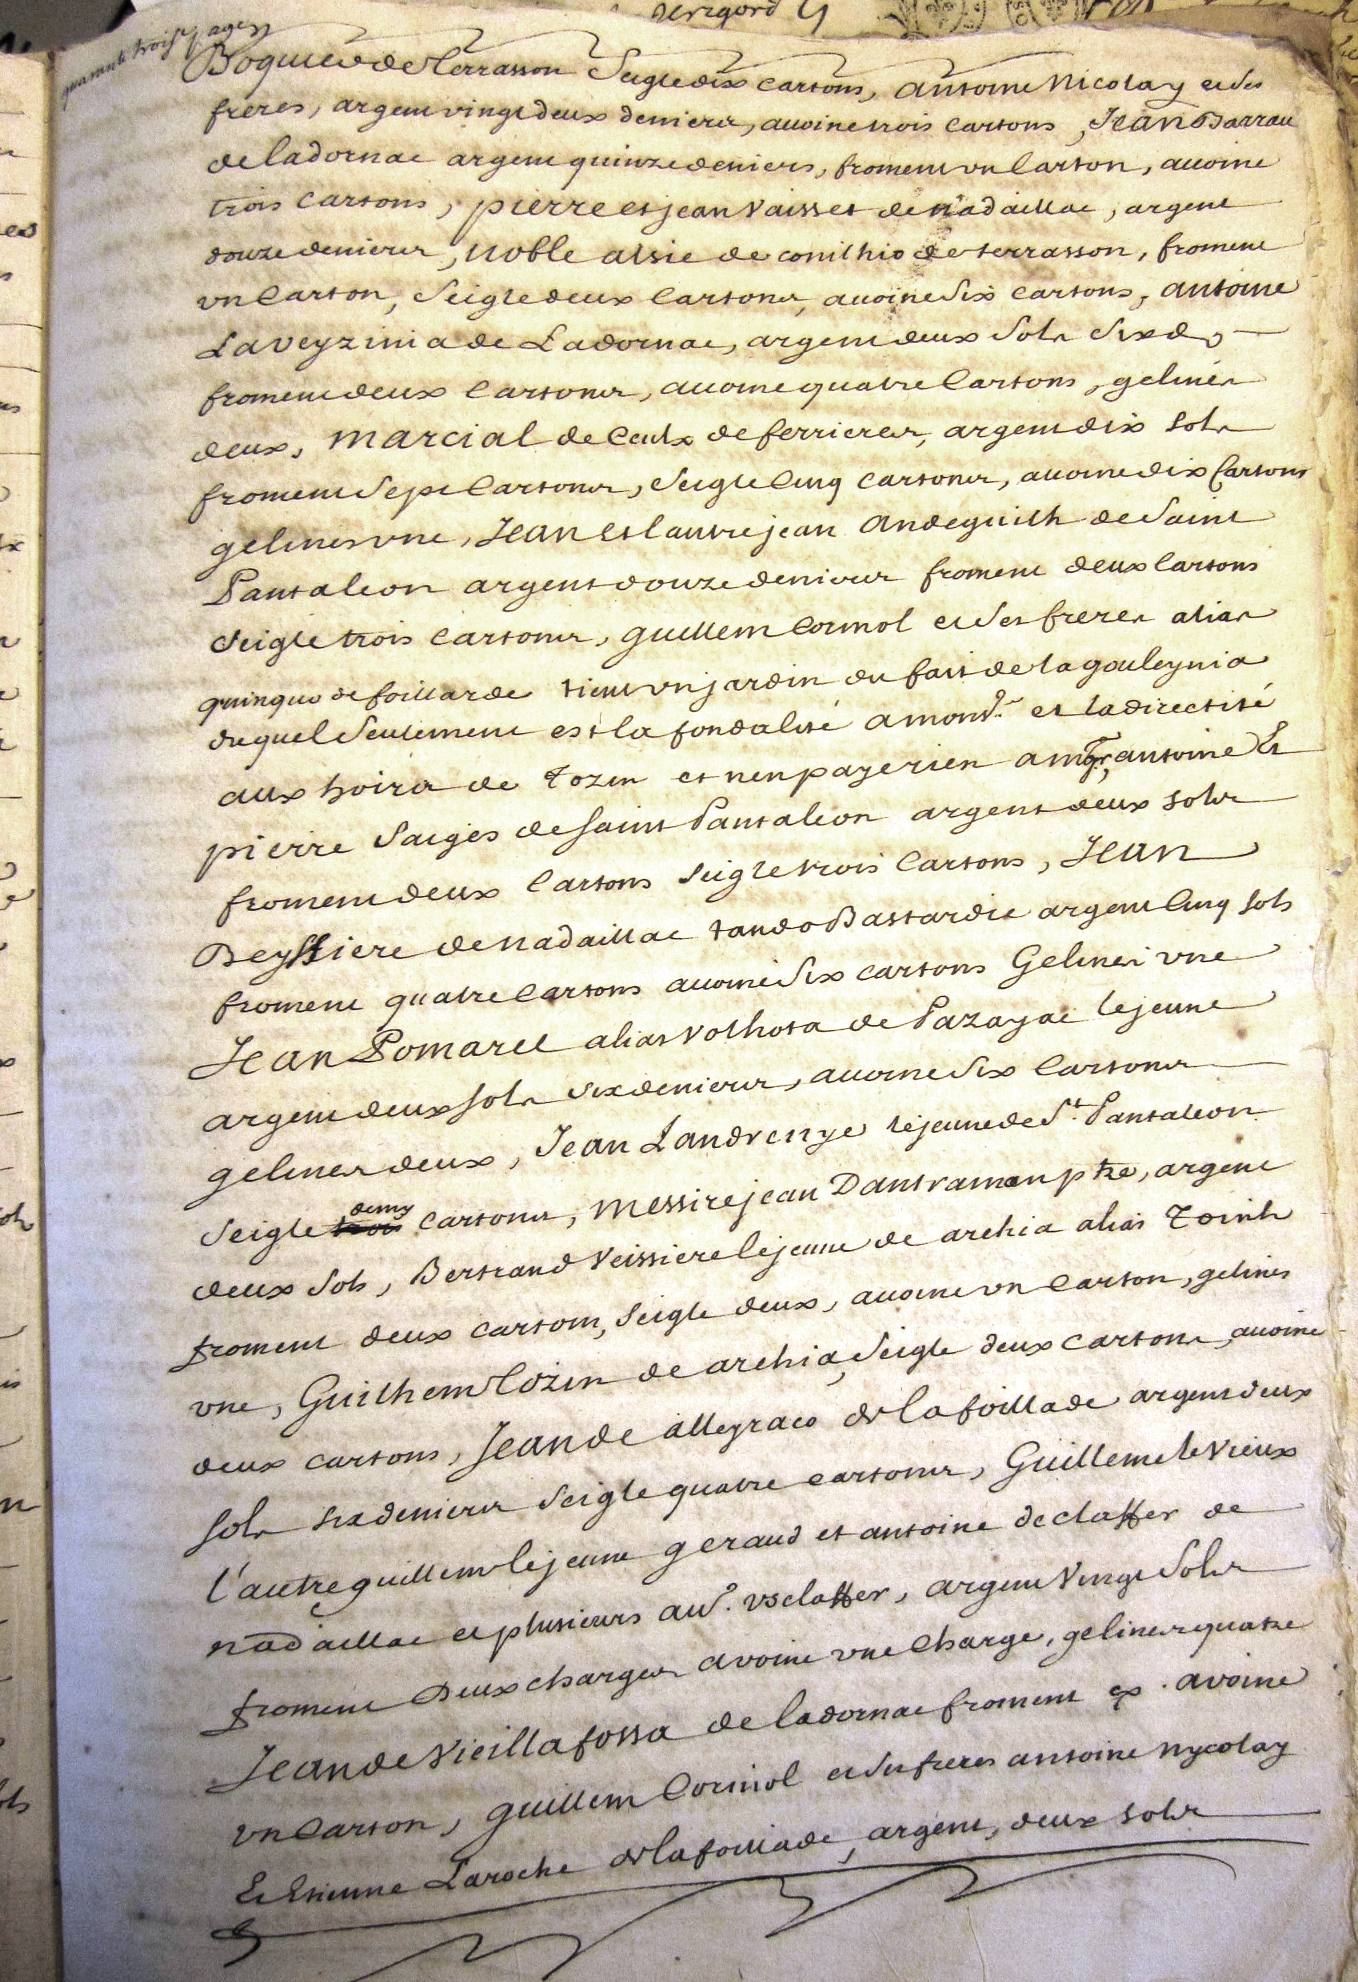 perigord
quarante trois pages
Boquier de terrasson Seigle dix cartons, antoine Nicolay et ses
freres, argent vingt deux deniers, avoine trois cartons, Jean Barrau
de ladornac argent quinze deniers, froment un Carton, avoine
trois cartons, pierre et jean Vaisset de nadaillac, argent
douze deniers, noble alsie de conilhio de terrasson, froment
un Carton, Seigle deux Cartons, avoine six cartons, antoine
Laveyzinia de Ladornac, argent deux sols six d,
froment deux Cartons, avoine quatre Cartons, gelines
deux, marcial de Ceulx de ferrieres, argent dix sols
froment sept Cartons, Seigle Cinq cartons, avoine dix Cartons
gelines une, Jean et lautre jean andeguilh de Saint
Pantaleon argent douze deniers froment deux Cartons
Seigle trois Cartons, guillem Cormol et ses freres alias
quinquo de foillarde tient un jardin du fait de la gouleynia
duquel seulement est la fondalité a mond.r et la directité
aux hoirs de tozen et nen paye rien a mgr, antoine Et
pierre Saiges de saint Pantaleon argent deux sols
froment deux Cartons Seigle trois Cartons, Jean
Beyssiere de nadaillac Bastardie argent Cinq sols
froment quatre Cartons avoine six cartons Gelines une
Jean Pomarel alias Volhota de Pazayac le jeune
argent deux sols six deniers, avoine six Cartons
gelines deux, Jean Landrenye le jeune de St. Pantaleon
Seigle demy cartons, messire jean Dantraman ptre, argent
deux sols, Bertrand Veissiere le jeune de archia alias Toinh
froment deux cartons, seigle deux, avoine un Carton, gelines
une, Guilhem Tozen de archia, Seigle deux cartons, avoine
deux cartons, Jean de alleyraco de la foillade argent deux
sols six deniers Seigle quatre cartons, Guillem le vieux
l'autre guillem le jeune geraud et antoine de claffer de
nadaillac et plusieurs aud. usclaffer, argent Vingt Sols
froment Deux charges avoine une Charge, gelines quatre
Jean de Vieillafossa de ladornac froment ex. avoine
un Carton, guillem Cormol et ses freres antoine nycolay
Et Etienne Laroche de la foillade, argent, deux sols